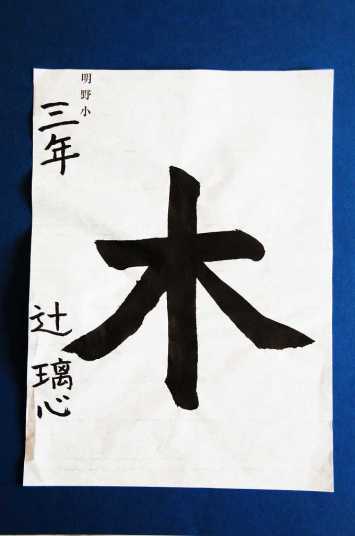 木
明野小
三年
辻璃心